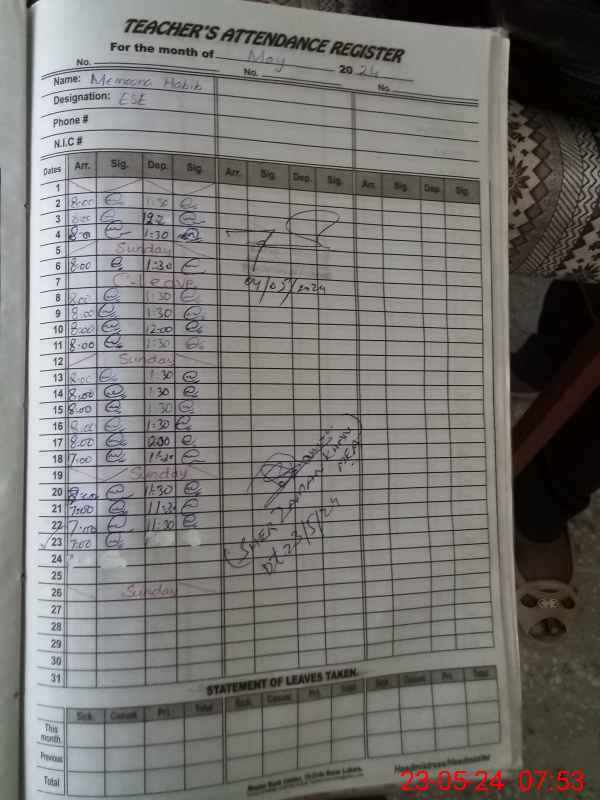 TEACHER'S ATTENDANCE REGISTER
For the month of May 2024
No. No. No.
Name: Memoona Habib
Designation: ESE
Phone #
N.I.C #
Dates Arr. Sig. Dep. Sig. Arr. Sig. Dep. Sig. Arr. Sig. Dep. Sig.
1
2 8:00 1:30
3 8:00
4 8:00 1:30
5 Sunday
6 8:00 1:30
7 C. Leave
8 8:00 1:30
9 8:00 1:30
10 8:00 12:00
11 8:00 1:30
12 Sunday
13 8:00 1:30
14 8:00 1:30
15 8:00 1:30
16 8:00 1:30
17 8:00
18 7:00 11:30
19 Sunday
20 11:30
21 7:00 11:30
22 7:00 11:30
23 7:00
24
25
26 Sunday
27
28
29
30
31
04/05/2024
Dt 23/5/24
STATEMENT OF LEAVES TAKEN.
Sick. Casual Pri. Total Sick. Casual Pri. Total Sick. Casual Pri. Total
This month
Previous
Total
Headmistress/Headmaster
23-05-24 07:53